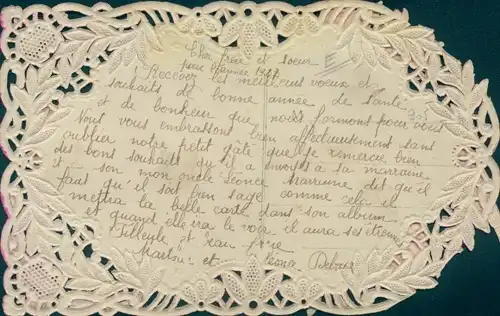 Cher frère et soeur
pour l'année 1947
Recevez les meilleurs voeux et
souhaits de bonne année de santé
et de bonheur que nous formons pour vous
Nous vous embrassons bien affectueusement sans
oublier notre petit gâté que je remercie bien
des bons souhaits qu'il a envoyés à sa marraine
et à son mon oncle Léonce Marraine dit qu'il
faut qu'il soit bien sage comme cela il
mettra la belle carte dans son album
et quand elle ira le voir il aura ses étrennes
et
Marthe et Léonce